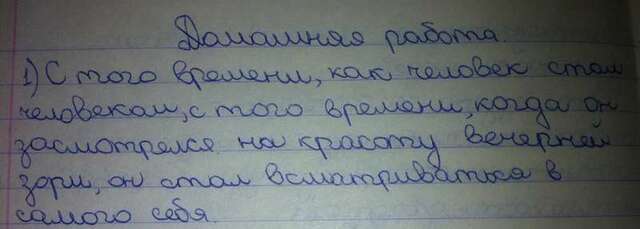 Домашняя работа
1) С того времени, как человек стал
человеком, с того времени, когда он
засмотрелся на красоту вечерней
зори, он стал всматриваться в
самого себя.